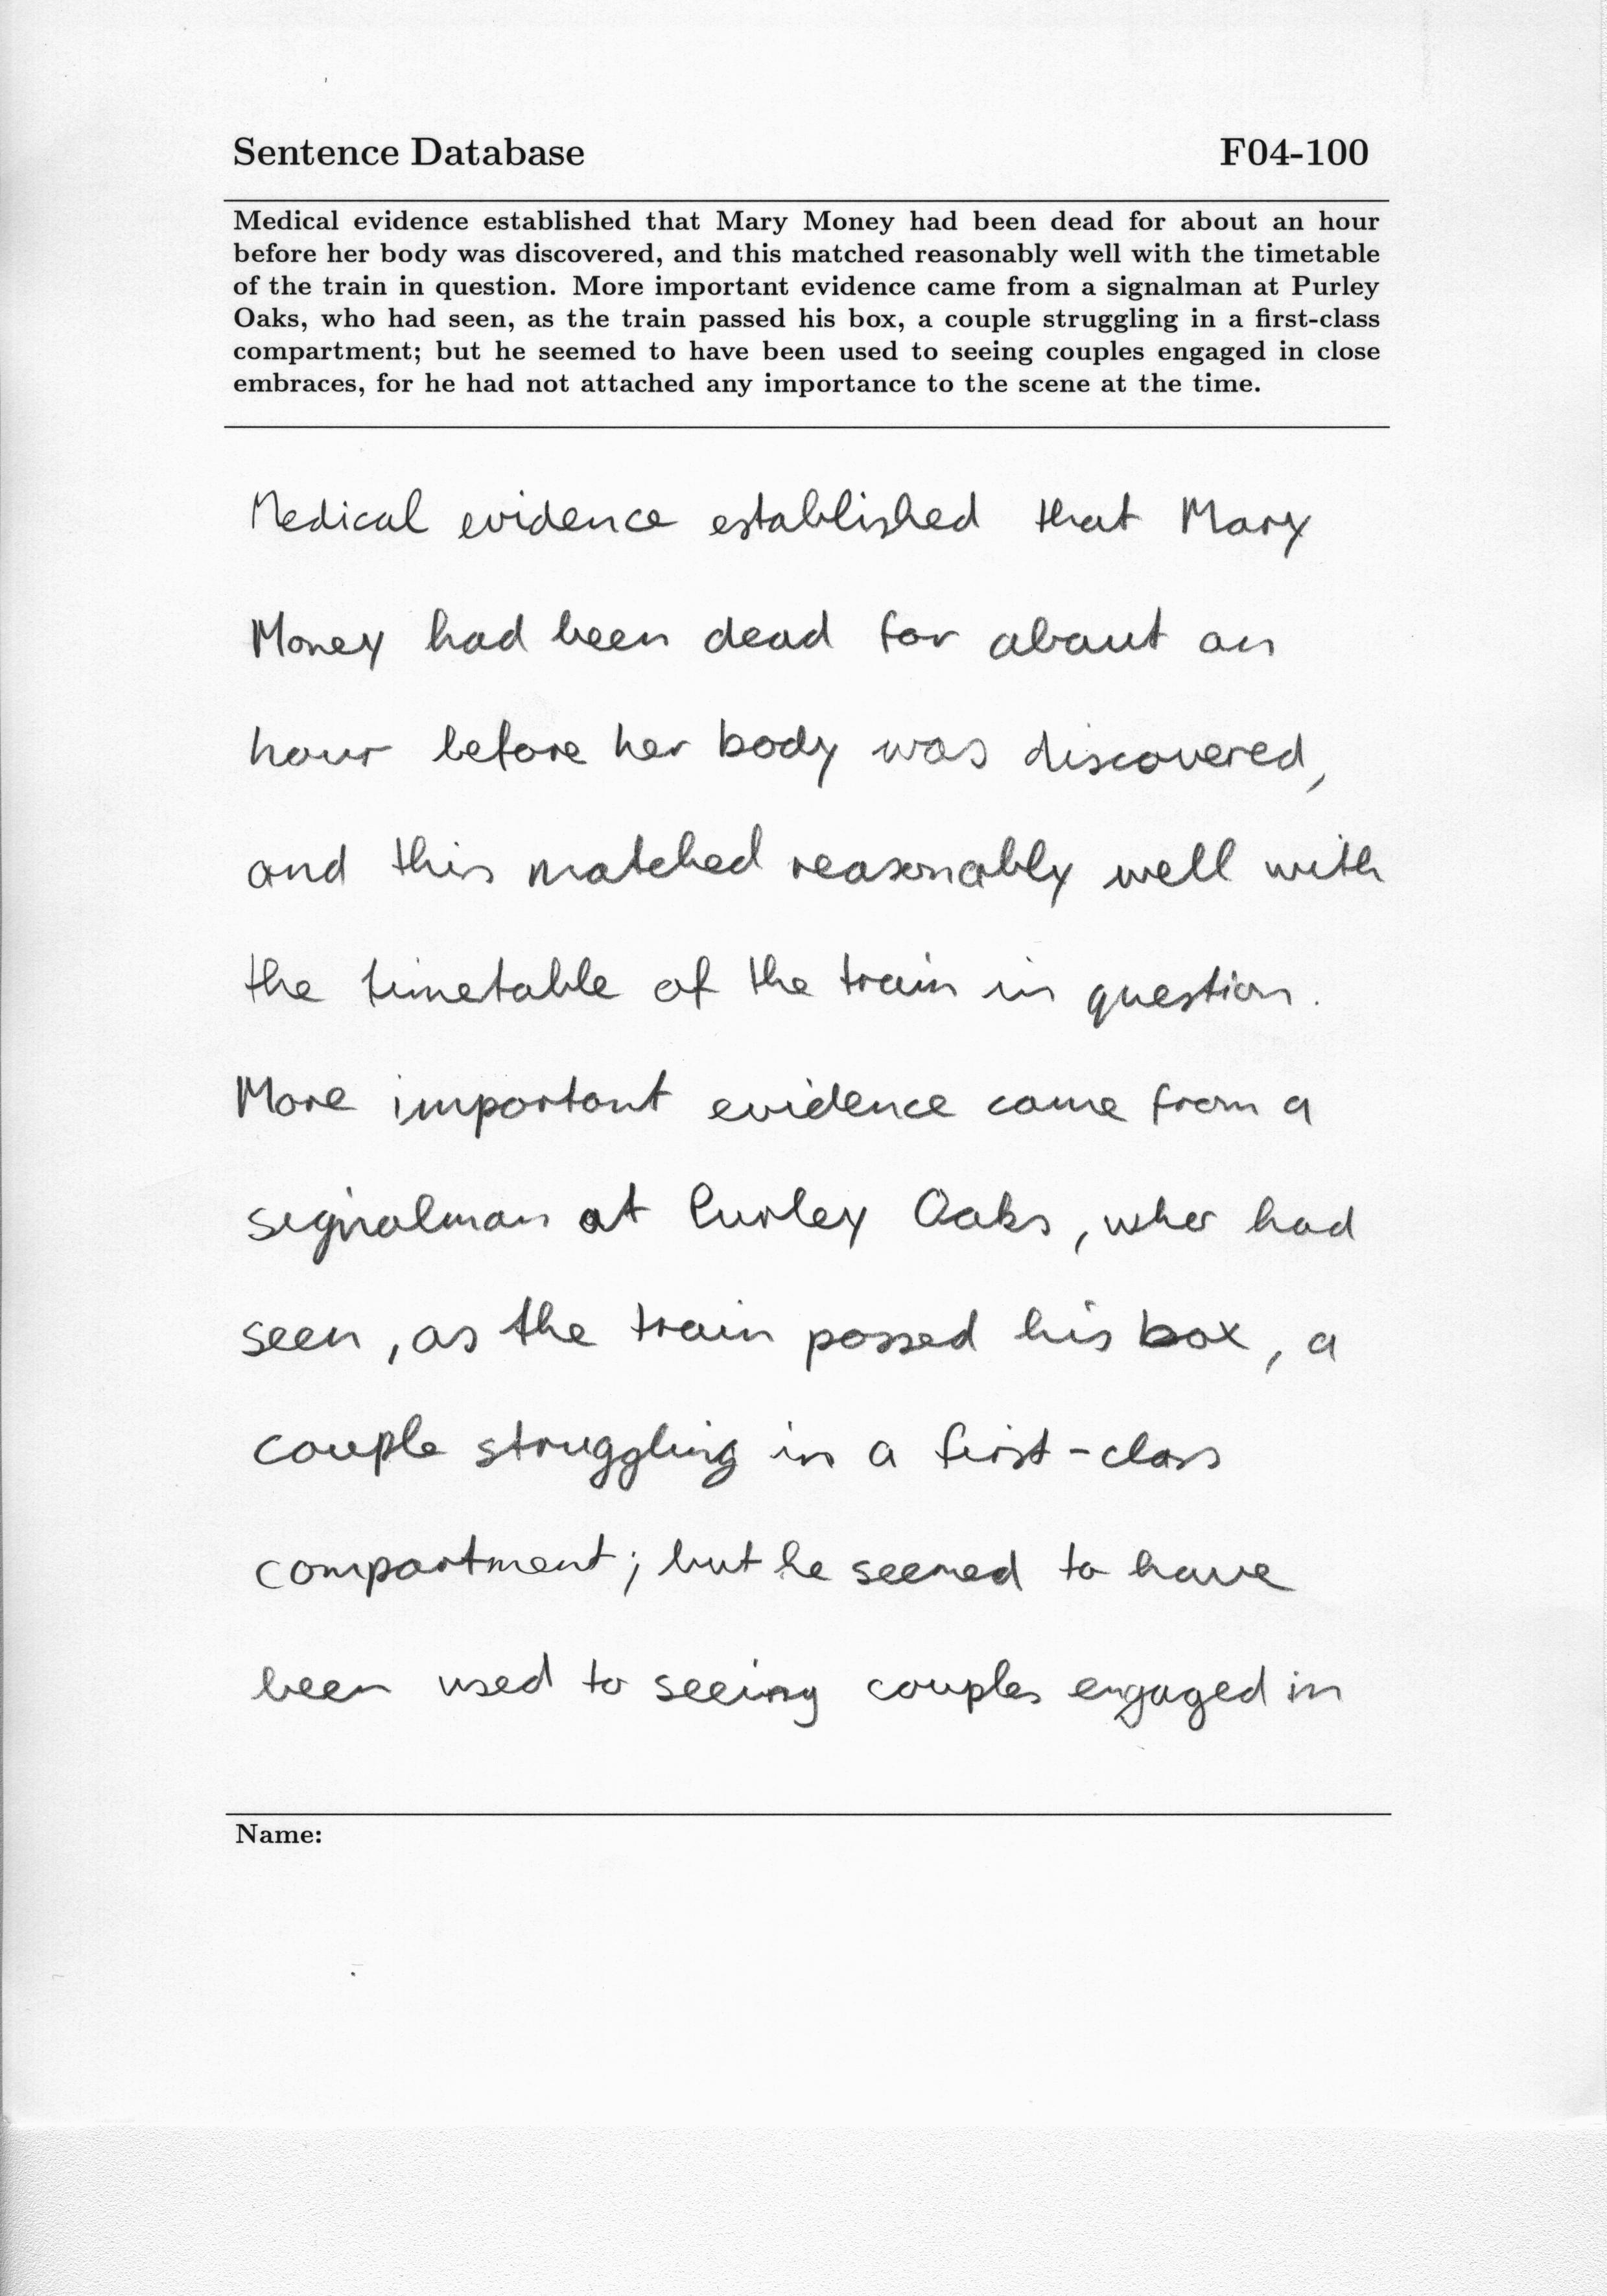 Sentence Database F04-100
Medical evidence established that Mary Money had been dead for about an hour
before her body was discovered, and this matched reasonably well with the timetable
of the train in question. More important evidence came from a signalman at Purley
Oaks, who had seen, as the train passed his box, a couple struggling in a first-class
compartment; but he seemed to have been used to seeing couples engaged in close
embraces, for he had not attached any importance to the scene at the time.
Medical evidence established that Mary
Money had been dead for about an
hour before her body was discovered,
and this matched reasonably well with
the timetable of the train in question.
More important evidence came from a
signalman at Purley Oaks, who had
seen, as the train passed his box, a
couple struggling in a first-class
compartment; but he seemed to have
been used to seeing couples engaged in
Name: